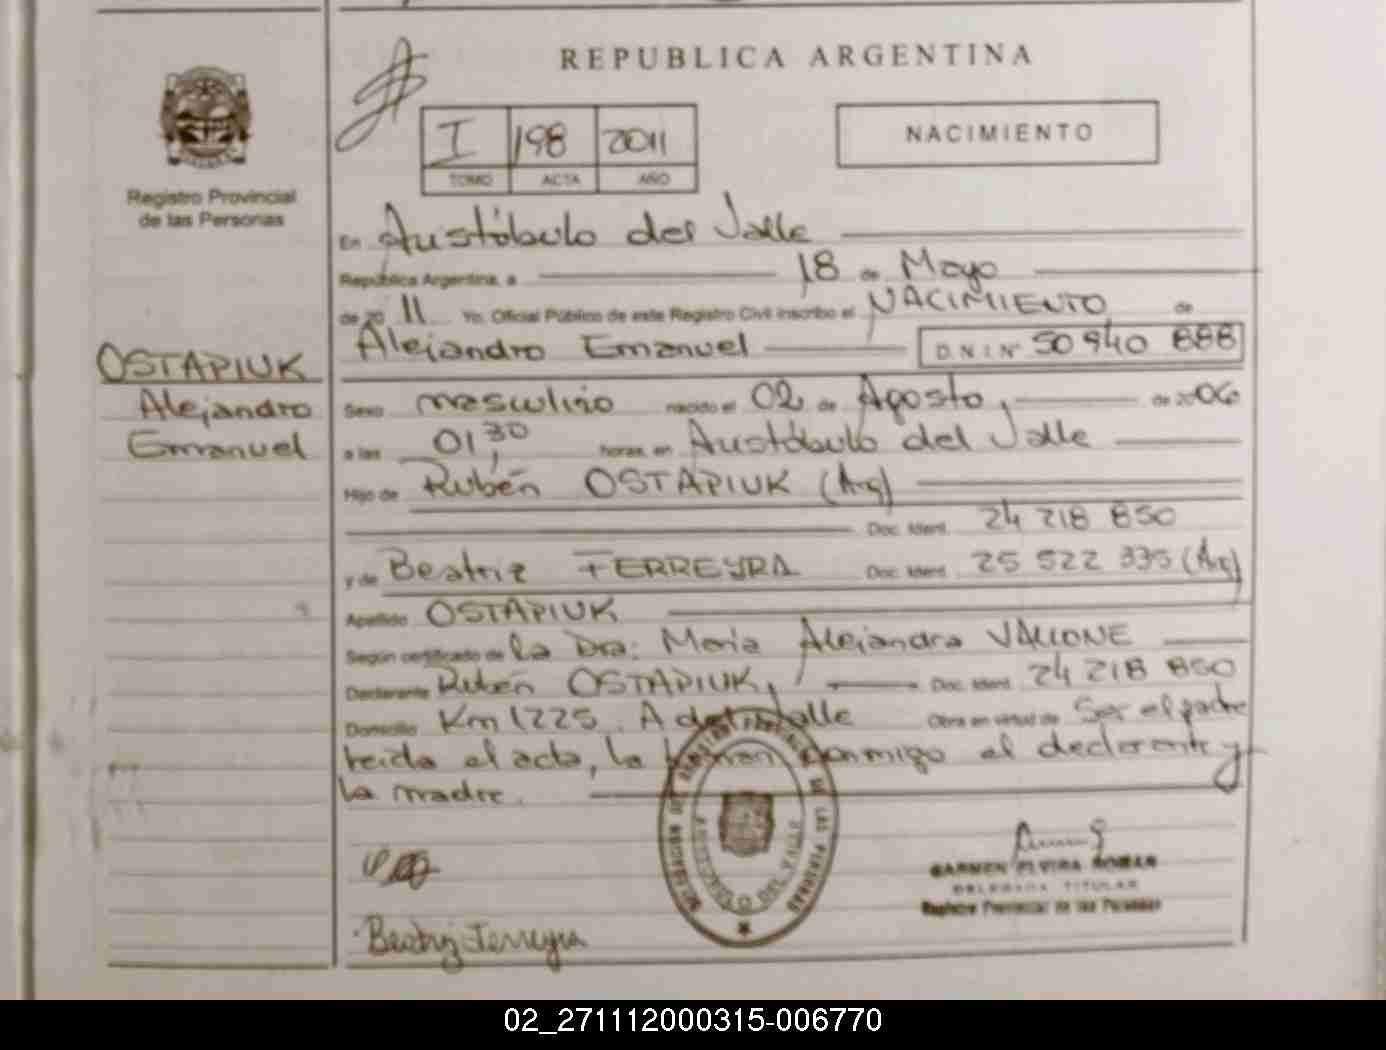 REPUBLICA ARGENTINA
I 198 2011
TOMO ACTA AÑO
NACIMIENTO
Registro Provincial
de las Personas
OSTAPIUK
Alejandro
Emanuel
En Austóbulo del Valle
República Argentina, a 18 de Mayo
de 2011 Yo, Oficial Público de este Registro Civil inscribo el NACIMIENTO de
Alejandro Emanuel D.N.I Nº 50 940 888
Sexo masculino nacido el 02 de Agosto, de 2006
a las 01,30 horas, en Austóbulo del Valle
Hijo de Rubén OSTAPIUK (Arg)
Doc. Ident. 24 218 850
y de Beatriz FERREYRA Doc. Ident. 25 522 335 (Arg)
Apellido OSTAPIUK
Según certificado de la Dra: María Alejandra VALLONE
Declarante Rubén OSTAPIUK, Doc. Ident. 24 218 850
Domicilio Km 1225. A del Valle Obra en virtud de Ser el padre
leída el acta, la firman conmigo el declarante y
la madre.
CARMEN ELVIRA ROMAN
DELEGADA TITULAR
Registro Provincial de las Personas
Beatriz Ferreyra
02_271112000315-006770